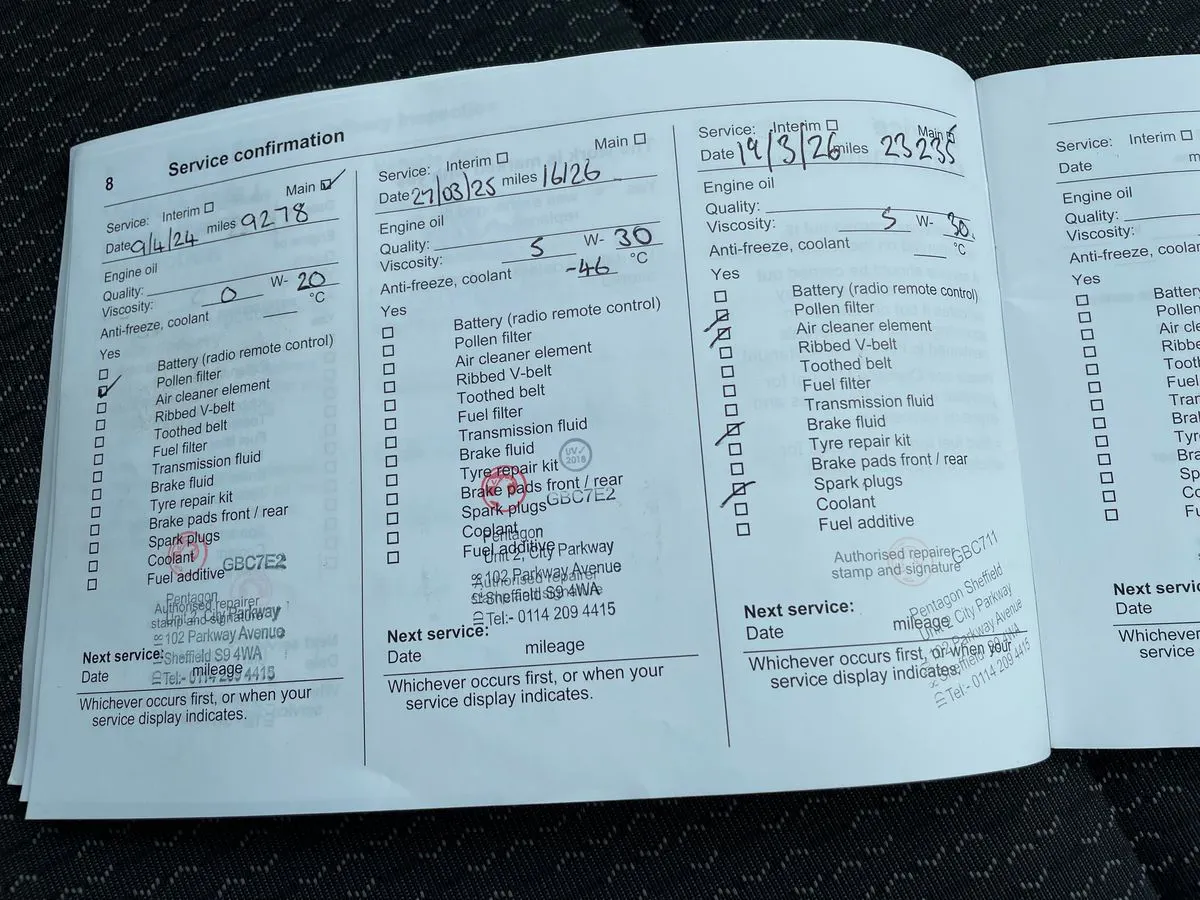 8 Service confirmation
Service: Interim Main
Date 9/4/24 miles 9278
Engine oil
Quality:
Viscosity: 0 W- 20
Anti-freeze, coolant °C
Yes
Battery (radio remote control)
Pollen filter
Air cleaner element
Ribbed V-belt
Toothed belt
Fuel filter
Transmission fluid
Brake fluid
Tyre repair kit
Brake pads front / rear
Spark plugs
Coolant
Fuel additive
GBC7E2
Authorised repairer
stamp and signature
Pentagon
Unit 2, City Parkway
102 Parkway Avenue
Sheffield S9 4WA
Tel:- 0114 209 4415
Next service:
Date mileage
Whichever occurs first, or when your
service display indicates.
Service: Interim Main
Date 27/03/25 miles 16126
Engine oil
Quality:
Viscosity: 5 W- 30
Anti-freeze, coolant -46 °C
Yes
Battery (radio remote control)
Pollen filter
Air cleaner element
Ribbed V-belt
Toothed belt
Fuel filter
Transmission fluid
Brake fluid
Tyre repair kit
Brake pads front / rear
Spark plugs
Coolant
Fuel additive
UV✓
2018
GBC7E2
Authorised repairer
stamp and signature
Pentagon
Unit 2, City Parkway
102 Parkway Avenue
Sheffield S9 4WA
Tel:- 0114 209 4415
Next service:
Date mileage
Whichever occurs first, or when your
service display indicates.
Service: Interim Main
Date 19/3/26 miles 23235
Engine oil
Quality:
Viscosity: 5 W- 30
Anti-freeze, coolant °C
Yes
Battery (radio remote control)
Pollen filter
Air cleaner element
Ribbed V-belt
Toothed belt
Fuel filter
Transmission fluid
Brake fluid
Tyre repair kit
Brake pads front / rear
Spark plugs
Coolant
Fuel additive
Authorised repairer
stamp and signature
GBC711
Pentagon Sheffield
Unit 2, City Parkway
102 Parkway Avenue
Sheffield S9 4WA
Tel:- 0114 209 4415
Next service:
Date mileage
Whichever occurs first, or when your
service display indicates.
Service: Interim
Date m
Engine oil
Quality:
Viscosity:
Anti-freeze, coolan
Yes
Battery
Pollen
Air cle
Ribbe
Tooth
Fuel f
Trans
Brak
Tyre
Bra
Sp
Co
Fu
Next service:
Date
Whichever occurs
service